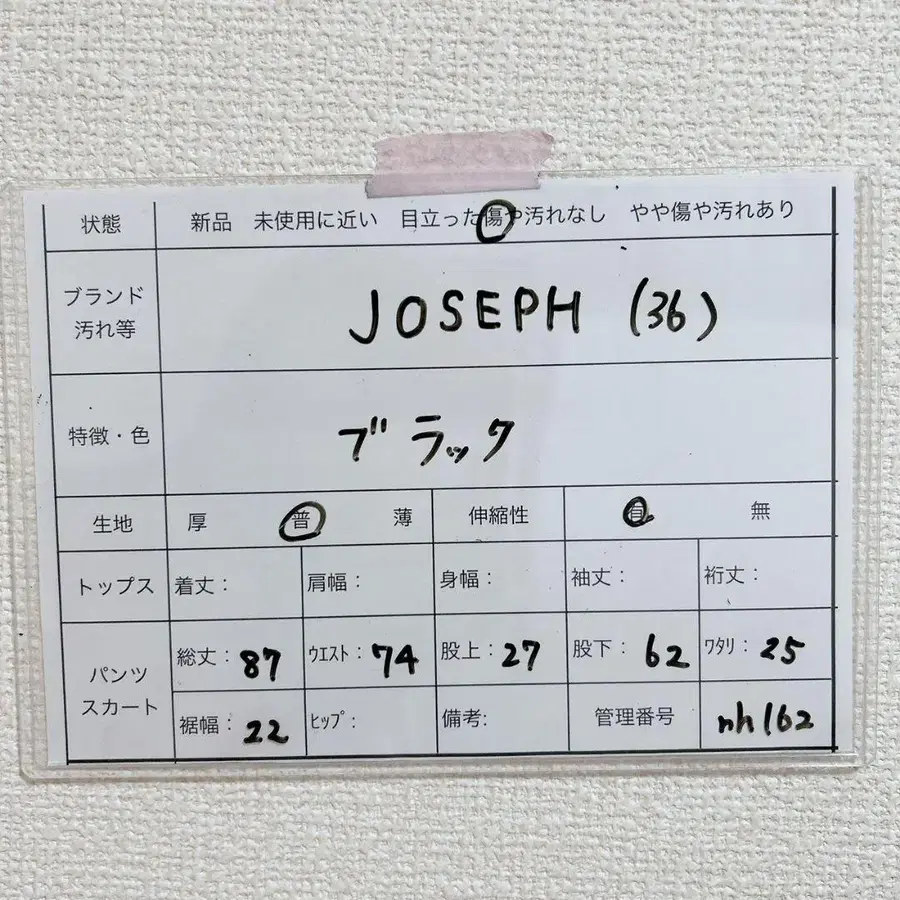 状態 新品 未使用に近い 目立った傷や汚れなし やや傷や汚れあり
ブランド
汚れ等
JOSEPH (36)
特徴・色 ブラック
生地 厚 普 薄 伸縮性 有 無
トップス 着丈: 肩幅: 身幅: 袖丈: 裄丈:
パンツ
スカート
総丈: 87 ウエスト: 74 股上: 27 股下: 62 ワタリ: 25
裾幅: 22 ヒップ: 備考: 管理番号 nh162